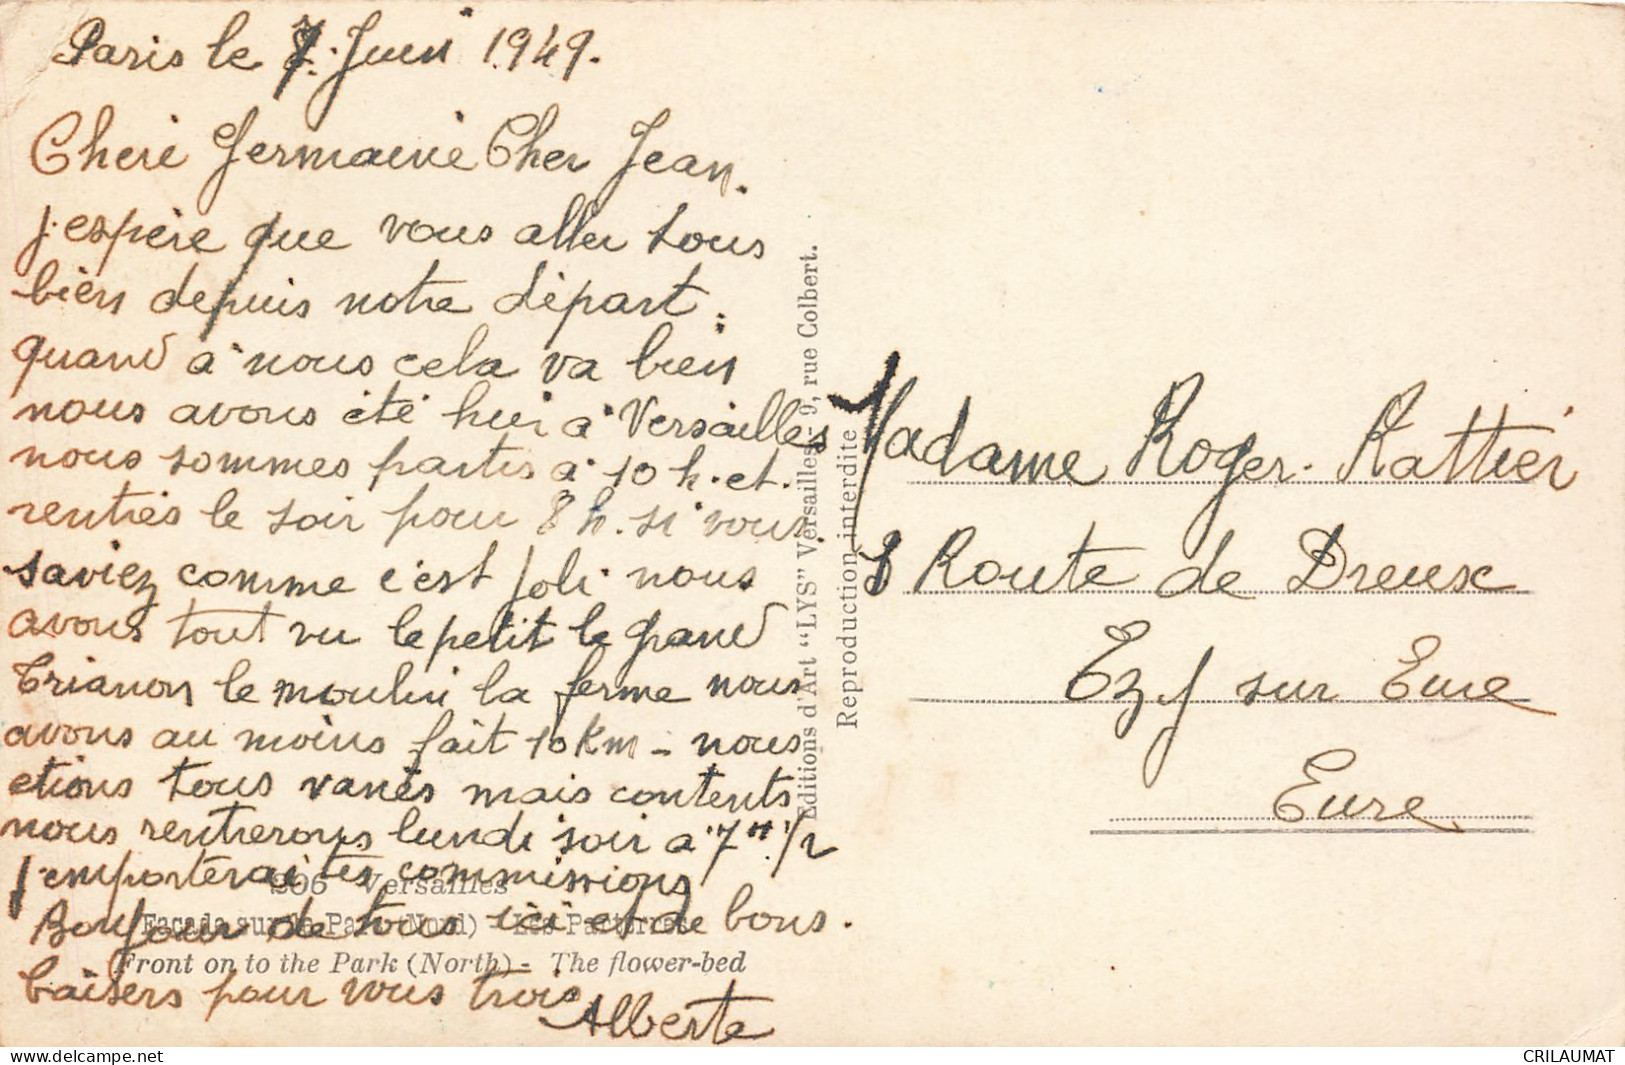 Paris le 7. Juin 1949.
Cheri Germaine Cher Jean.
j'espère que vous aller tous
bien depuis notre départ.
quand à nous cela va bien
nous avons été hier a Versailles
nous sommes partis à 10 h. et.
rentrés le soir pour 8 h. si vous
saviez comme c'est joli nous
avons tout vu le petit le grand
Trianon le moulin la ferme nous
avons au moins fait 10 Km - nous
etions tous vanés mais contents
nous rentrerons lundi soir a 7 H 1/2
j'emporterai tes commissions
Bonjour de tous ici et de bons.
baisers pour vous trois
Alberte
206 Versailles
Façade sur le Parc (Nord) - Les Parterres
Front on to the Park (North) - The flower-bed
Editions d'Art "LYS" Versailles - 9, rue Colbert.
Reproduction interdite
Madame Roger. Rattier
8 Route de Dreux
Ezy sur Eure
Eure
delcampe.net
CRILAUMAT